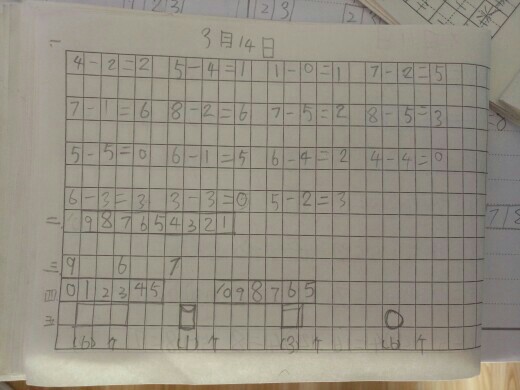 3月14日
一
4-2=2 5-4=1 1-0=1 7-2=5
7-1=6 8-2=6 7-5=2 8-5=3
5-5=0 6-1=5 6-4=2 4-4=0
6-3=3 3-3=0 5-2=3
二 987654321
三 9 6 7
四 012345 1098765
五
(6)个 (1)个 (3)个 (6)个